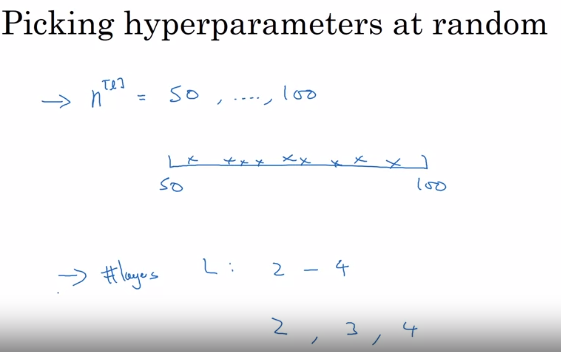 Picking hyperparameters at random
→ n^[l] = 50 , ...., 100
50 100
→ #layers L : 2 - 4
2 , 3 , 4